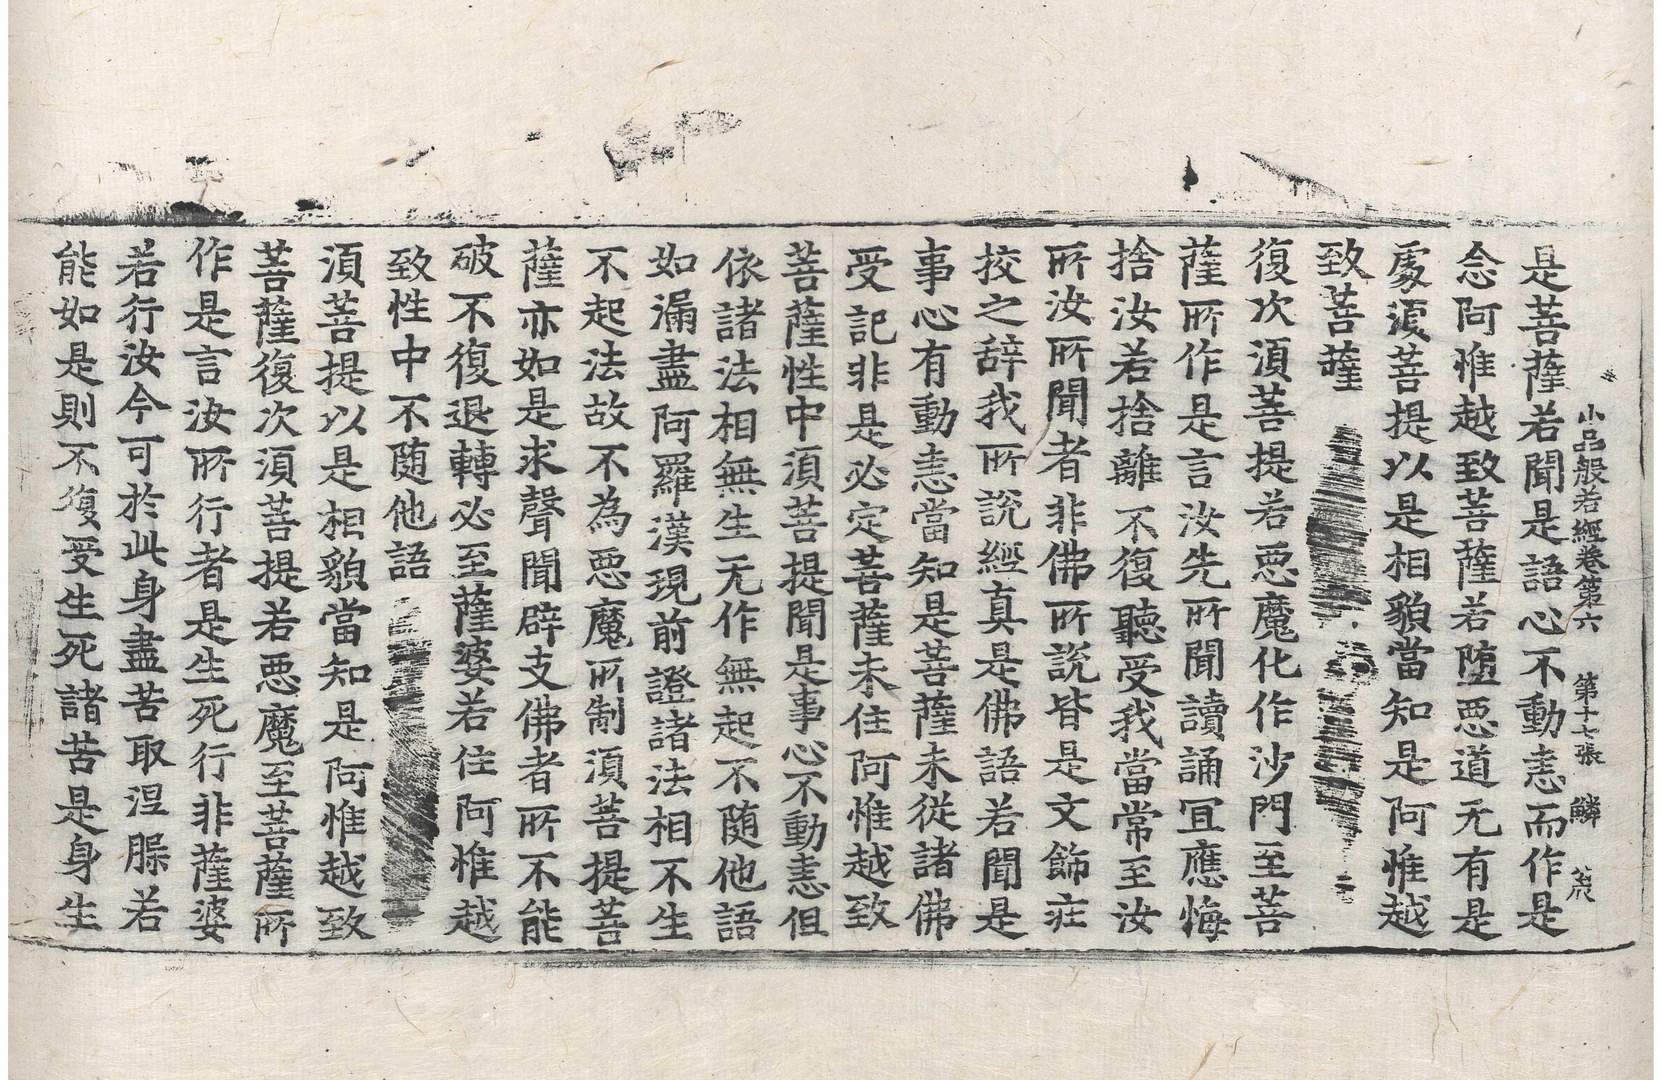 小品般若經卷第六 第十七張 鱗
是菩薩若聞是語心不動恚而作是
念阿惟越致菩薩若墮悪道无有是
處湏菩提以是相貌當知是阿惟越
致菩薩
復次湏菩提若悪魔化作沙門至菩
薩所作是言汝先所聞讀誦宜應悔
捨汝若捨離不復聽受我當常至汝
所汝所聞者非佛所說皆是文飾莊
挍之辭我所說經真是佛語若聞是
事心有動恚當知是菩薩未從諸佛
受記非是必定菩薩未住阿惟越致
菩薩性中湏菩提聞是事心不動恚但
依諸法相無生无作無起不随他語
如漏盡阿羅漢現前證諸法相不生
不起法故不為悪魔所制湏菩提菩
薩亦如是求聲聞辟支佛者所不能
破不復退轉必至薩婆若住阿惟越
致性中不随他語
湏菩提以是相貌當知是阿惟越致
菩薩復次湏菩提若悪魔至菩薩所
作是言汝所行者是生死行非薩婆
若行汝今可於此身盡苦取涅槃若
能如是則不復受生死諸苦是身生